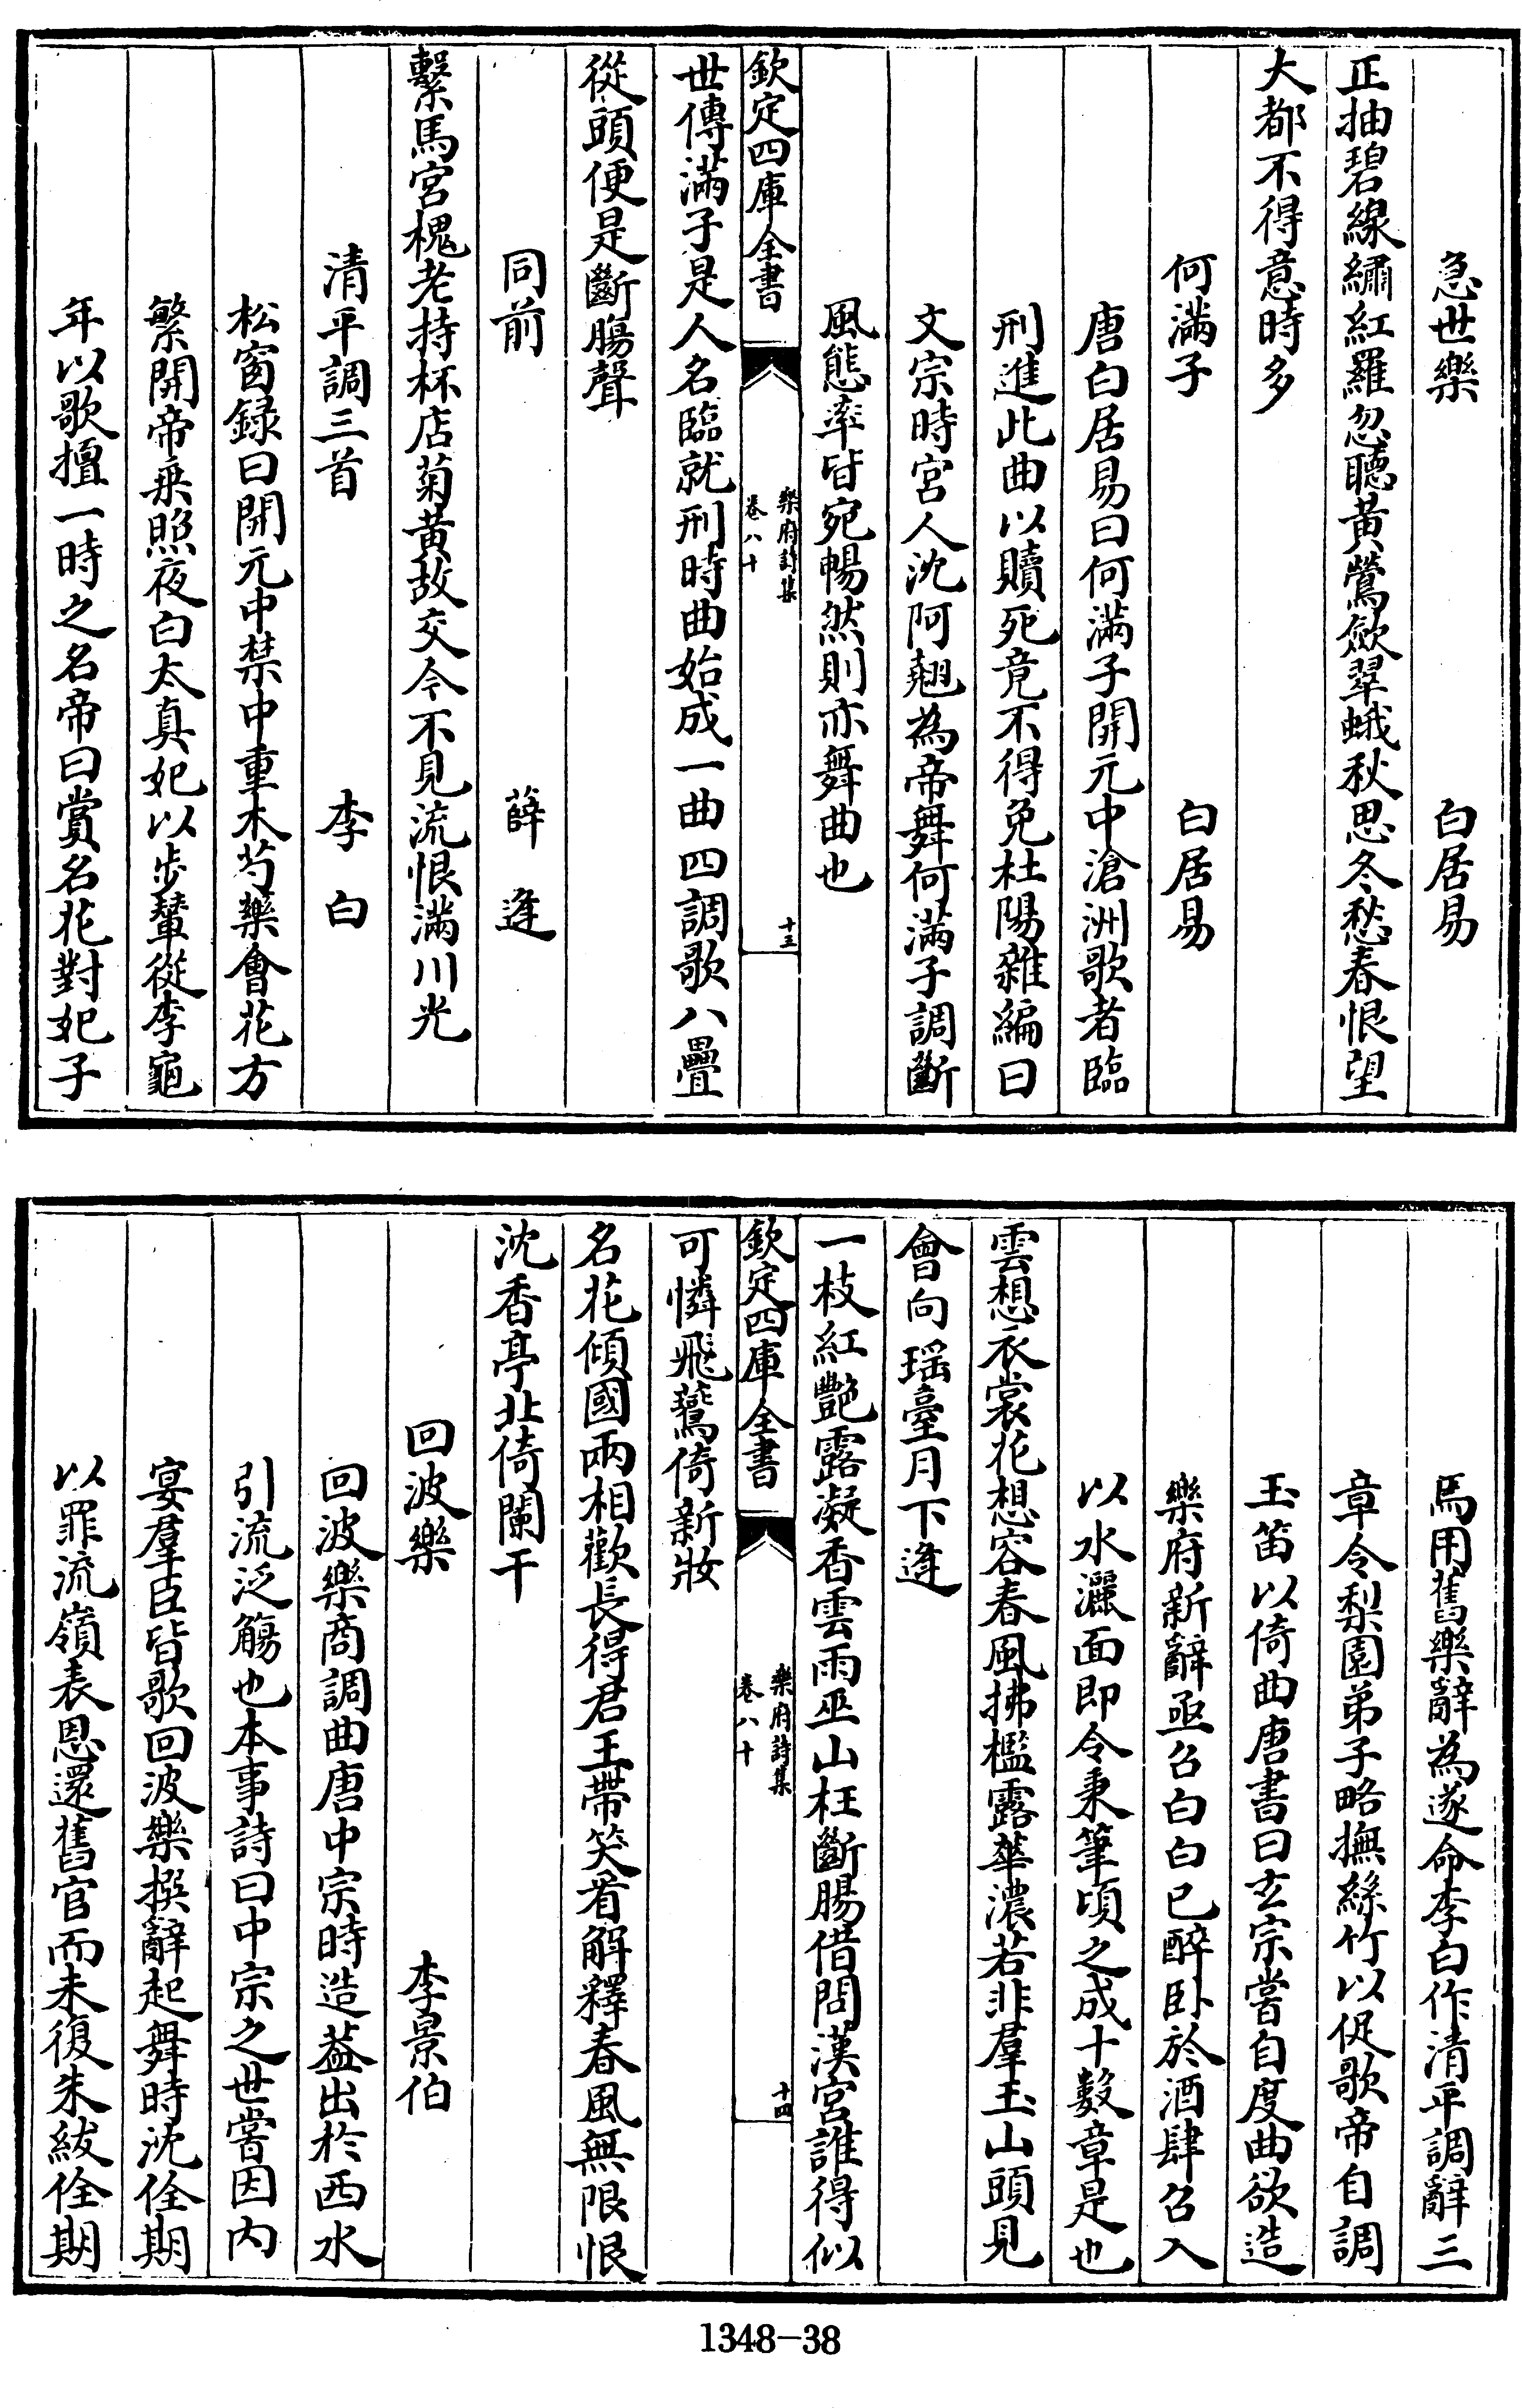 急世樂　白居易
正抽碧線繡紅羅忽聽黃鶯歛翠蛾秋思冬愁春恨望
大都不得意時多
何滿子　白居易
唐白居易曰何滿子開元中滄洲歌者臨
刑進此曲以贖死竟不得免杜陽雜編曰
文宗時宮人沈阿翹為帝舞何滿子調斷
風態率皆宛暢然則亦舞曲也
欽定四庫全書　樂府詩集　卷八十　十三
世傳滿子是人名臨就刑時曲始成一曲四調歌八疊
從頭便是斷腸聲
同前　薛逢
繫馬宮槐老持杯店菊黃故交今不見流恨滿川光
清平調三首　李白
松窗録曰開元中禁中重木芍藥會花方
繁開帝乗照夜白太真妃以步輦從李龜
年以歌擅一時之名帝曰賞名花對妃子
焉用舊樂辭為遂命李白作清平調辭三
章令梨園弟子略撫絲竹以促歌帝自調
玉笛以倚曲唐書曰玄宗嘗自度曲欲造
樂府新辭亟召白白已醉卧於酒肆召入
以水灑面即令秉筆頃之成十數章是也
雲想衣裳花想容春風拂檻露華濃若非羣玉山頭見
會向瑶臺月下逢
一枝紅艷露凝香雲雨巫山枉斷腸借問漢宮誰得似
欽定四庫全書　樂府詩集　卷八十　十四
可憐飛鷰倚新妝
名花傾國兩相歡長得君王帶笑看解釋春風無限恨
沈香亭北倚闌干
回波樂　李景伯
回波樂商調曲唐中宗時造葢出於西水
引流泛觴也本事詩曰中宗之世嘗因内
宴羣臣皆歌回波樂撰辭起舞時沈佺期
以罪流嶺表恩還舊官而未復朱紱佺期
1348-38